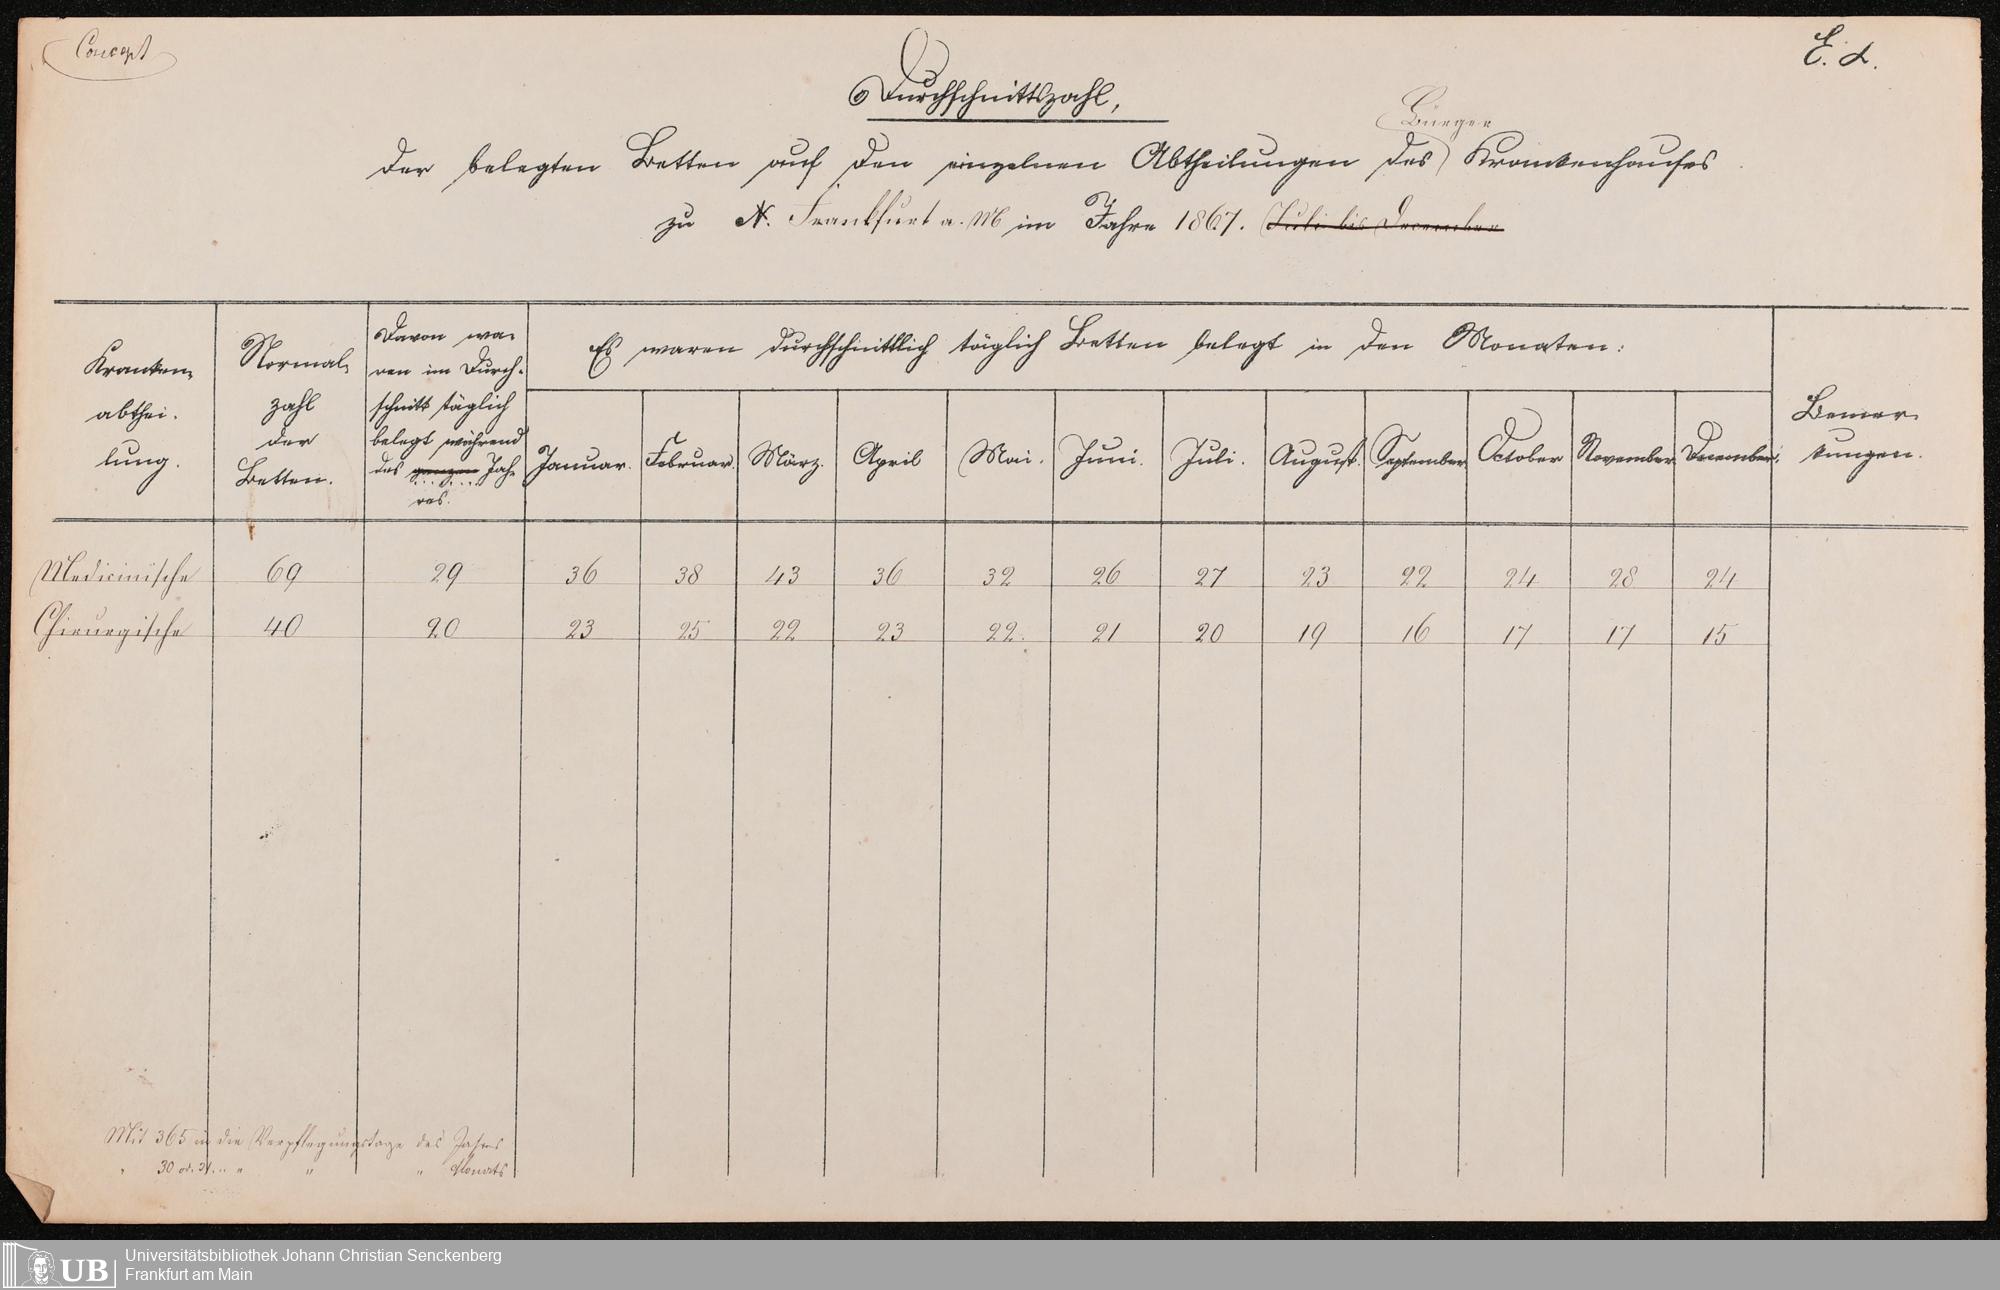 Concept
E. d.
Durchschnittszahl,
Bürger
der belegten Betten auf den einzelnen Abtheilungen des Krankenhauses
zu N. Frankfurt a. M im Jahre 1867. Juli bis December
Kranken-
abthei-
lung.
Normal-
zahl
der
Betten.
Davon wa-
ren im Durch-
schnitt täglich
belegt während
des ganzen Jah-
res.
Es waren durchschnittlich täglich Betten belegt in den Monaten:
Januar. Februar. März. April Mai. Juni. Juli. August. September October November December.
Bemer-
kungen.
Medicinische 69 29 36 38 43 36 32 26 27 23 22 24 28 24
Chirurgische 40 20 23 25 22 23 22. 21 20 19 16 17 17 15
Mit 365 in die Verpflegungstage des Jahres
" 30 od. 31. " " " " Monats
UB Universitätsbibliothek Johann Christian Senckenberg
Frankfurt am Main